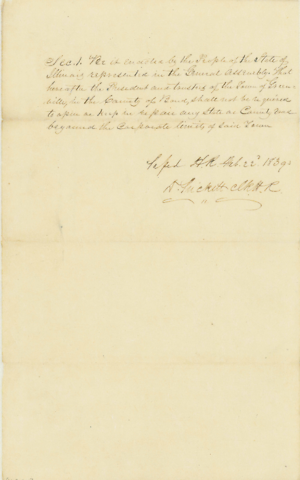 Sec. 1. Be it enacted by the People of the State of
Illinois, represented in the General Assembly That
here after the President and trustees of the Town of Green
ville, in the County of Bond, shall not be required
to open or keep in repair any State or County road
beyond the Corporate limits of said Town
H.R. Feb. 22d 1839.
D. Prickett Clk. H. R.